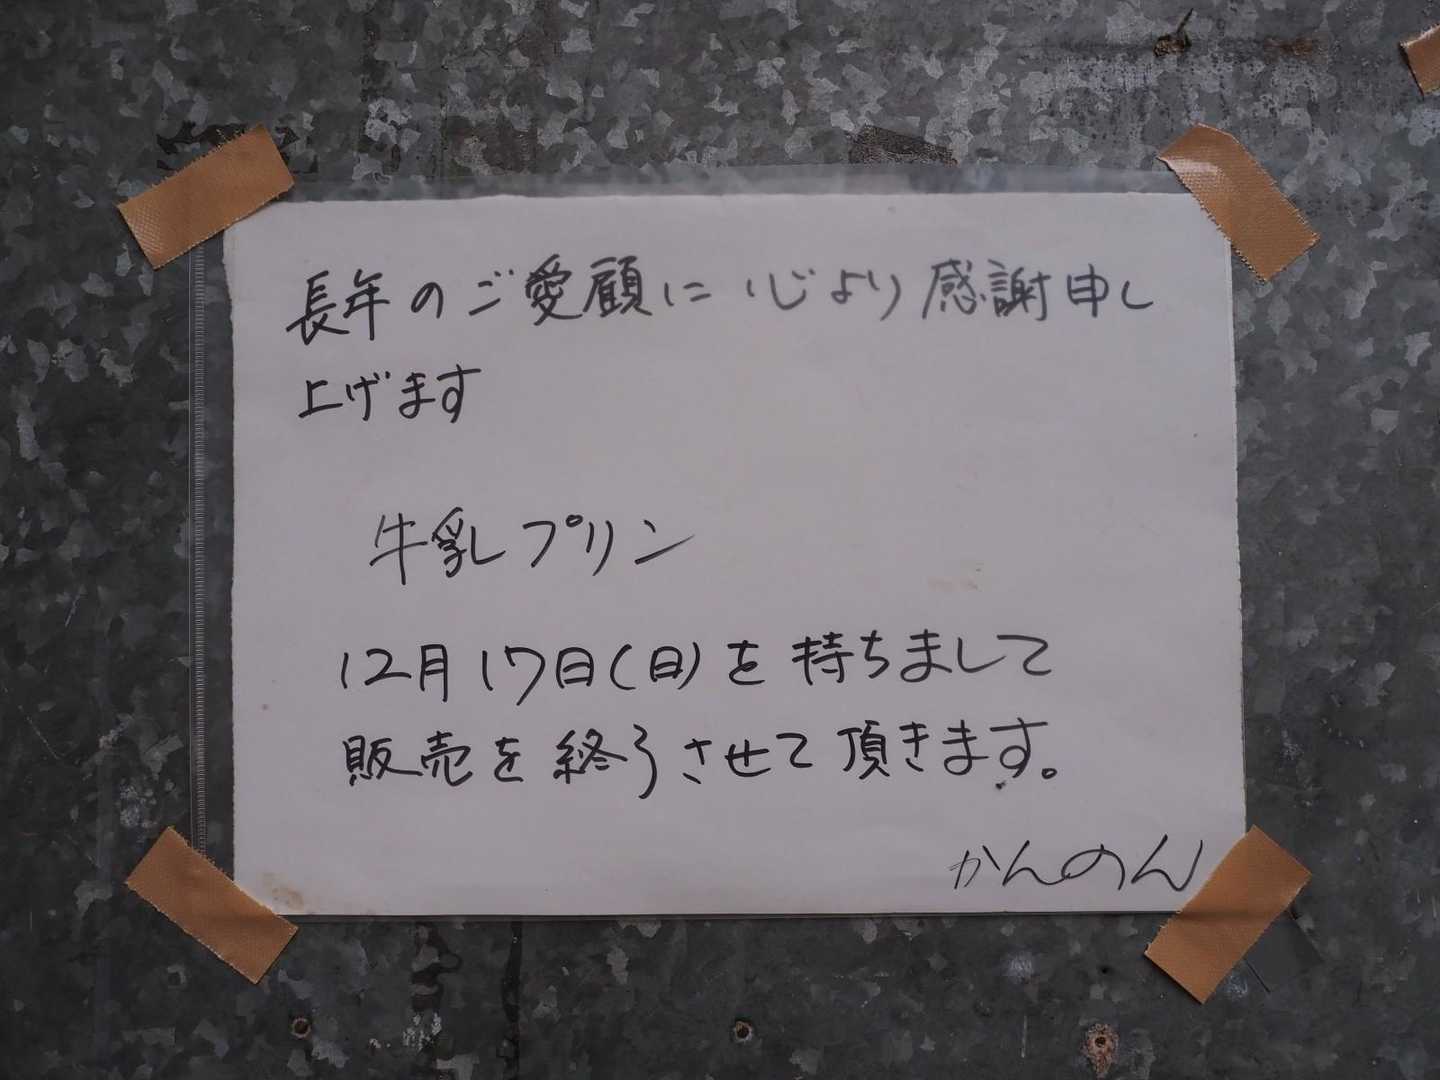 長年のご愛顧に心より感謝申し
上げます
牛乳プリン
12月17日(日)を持ちまして
販売を終了させて頂きます。
かんのん